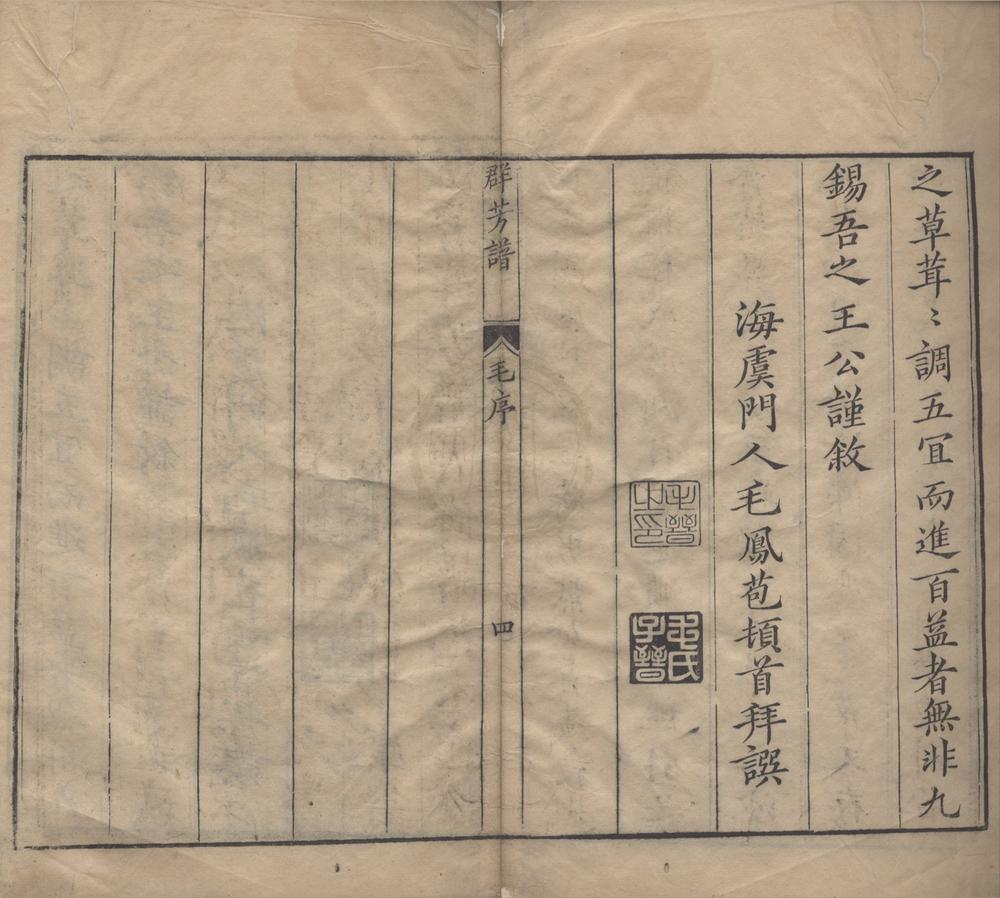 之草茸〻調五宜而進百益者無非九
錫吾之王公謹敘
海虞門人毛鳳苞頓首拜譔
毛晉之印
毛氏子晉
群芳譜
毛序
四